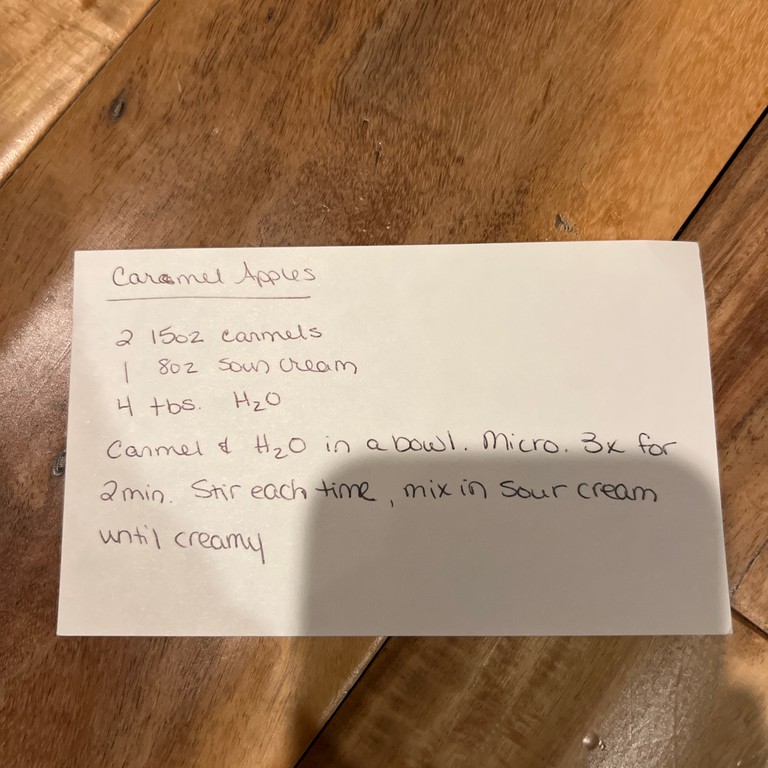 Caramel Apples
2 15oz carmels
1 8oz sour cream
4 tbs. H₂O
Carmel & H₂O in a bowl. Micro. 3x for
2min. Stir each time, mix in sour cream
until creamy